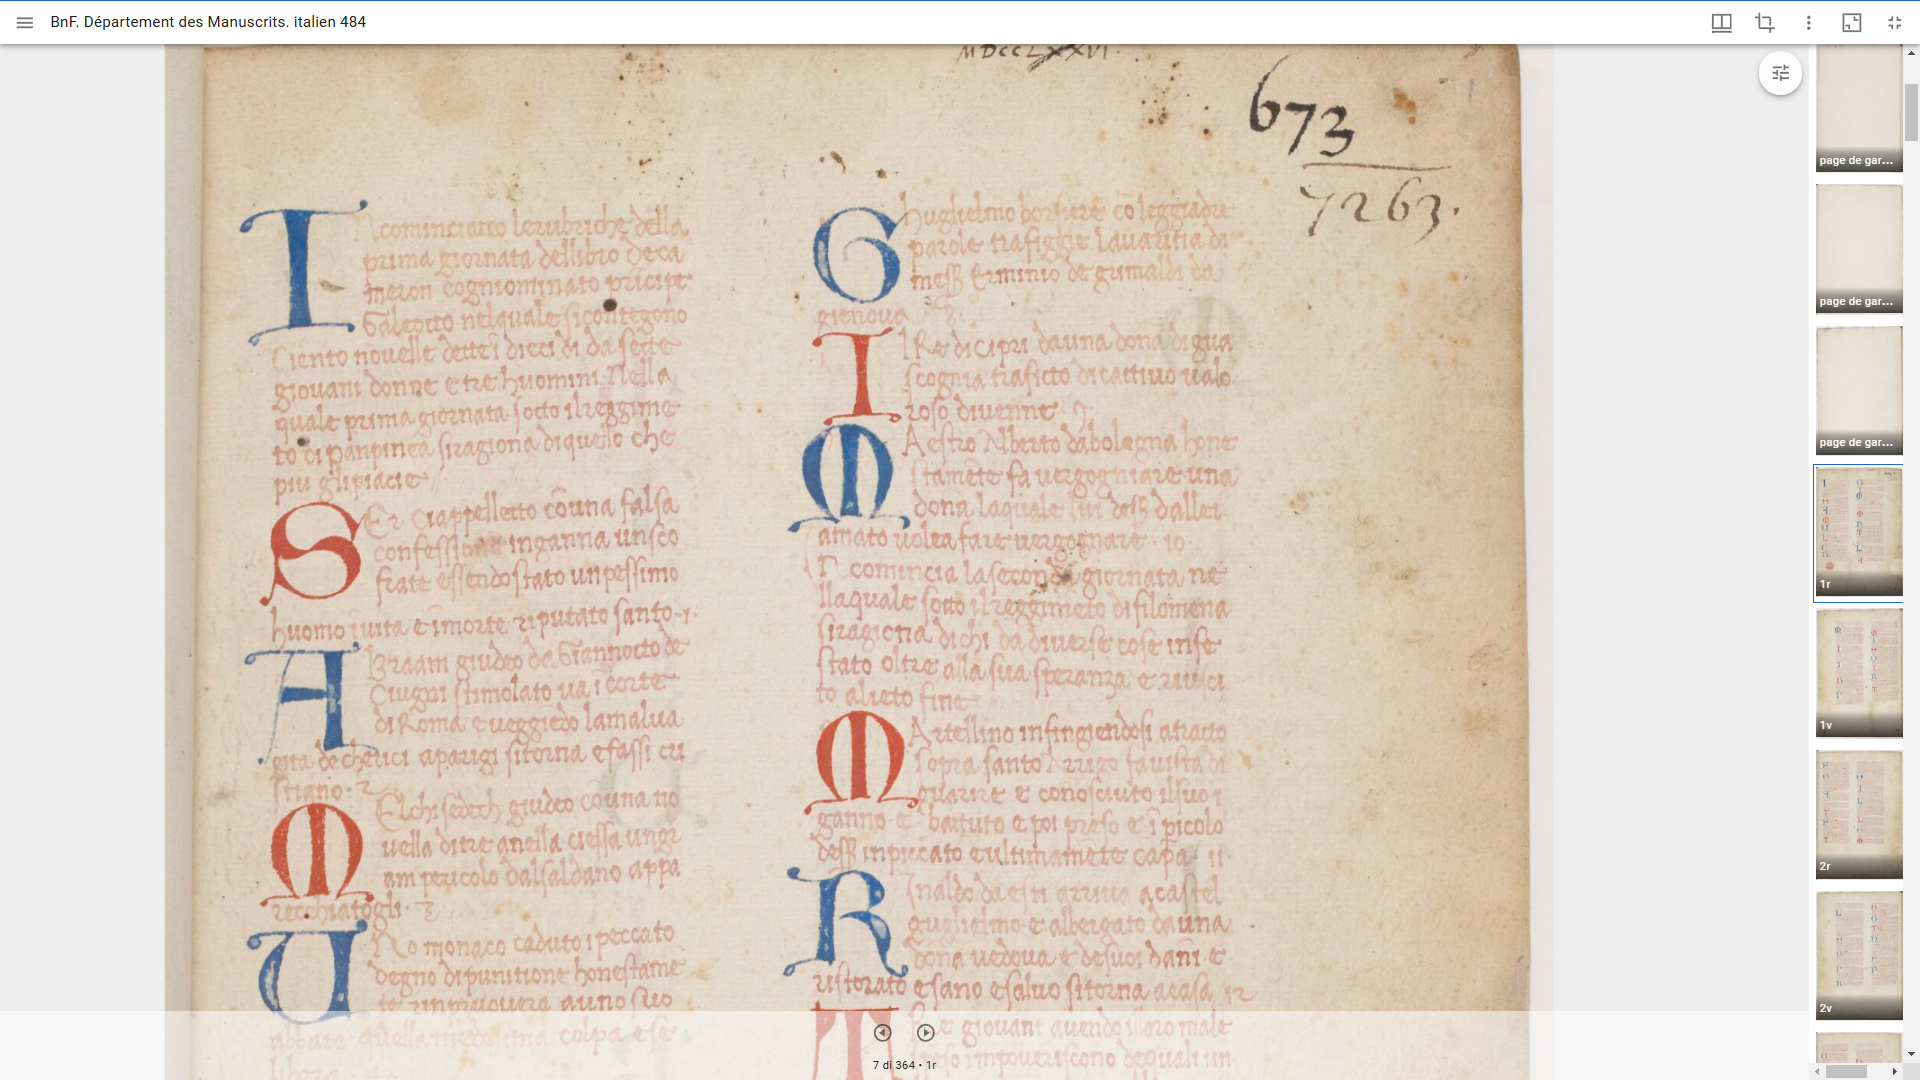 BnF. Département des Manuscrits. italien 484
MDCCLXXVI.
673
7263.
IN comínciano lerubriche della
prima giornata dellibro deca
meron cogniominato prīcipe
Galeotto nelquale sicontegono
Ciento nouelle dettei dieci di da sette
giouani donne e tre huomini. Nella
quale prima giornata sotto ilreggime
to di panpinea siragiona diquello che
piu glipiacie
SEr Ciappelletto cōuna falsa
confessione inganna unsco
frate essendo stato unpessimo
huomo ī uita e ī morte riputato santo .1.
ABraam giudeo da Giannotto de
Ciuigni stimolato ua ī corte
di Roma e ueggiēdo lamalua
gita de cherici a parigi sitorna e fassi cri
stiano. 2
MElchisedech giudeo cōuna no
uella di tre anella ciessa un gr
am pericolo dalsaldano appa
recchiatogli. 3
UNo monaco caduto ī peccato
degno di punitione honestame
te rimprouera a uno suo
abbate quella medesima colpa e se
libera
GHuglielmo borsiere cō leggiadre
parole trafiggie lauaritia di
mess Erminio de grimaldi da
gienoua 8.
IL Re di cipri da una dona di gua
scognia trafitto di cattiuo ualo
roso diuenne 9
MAestro Alberto dabologna hone
stamēte fa uergogniare una
dona laquale lui dess dallei
amato uolea fare uergognare. 10
IN comincia laseconda giornata ne
llaquale sotto ilreggimēto di filomena
siragiona di chi da diuerse cose infe
stato oltre alla sua speranza e riusci
to a lieto fine
MArtellino infingiendosi atratto
sopra santo Arrigo fa uista di
guarire e conosciuto ilsuo ī
ganno e battuto e poi preso e ī picolo
dess inpiccato e ultimamēte capa. 11
RInaldo da esti arriua a castel
guglielmo e albergato da una
dona uedoua e desuoi dani e
ristorato e sano e saluo sitorna acasa 12
TRe giouani auendo illoro male
speso impoueriscono dequali un
7 di 364 • 1r
page de gar...
page de gar...
page de gar...
1r
1v
2r
2v